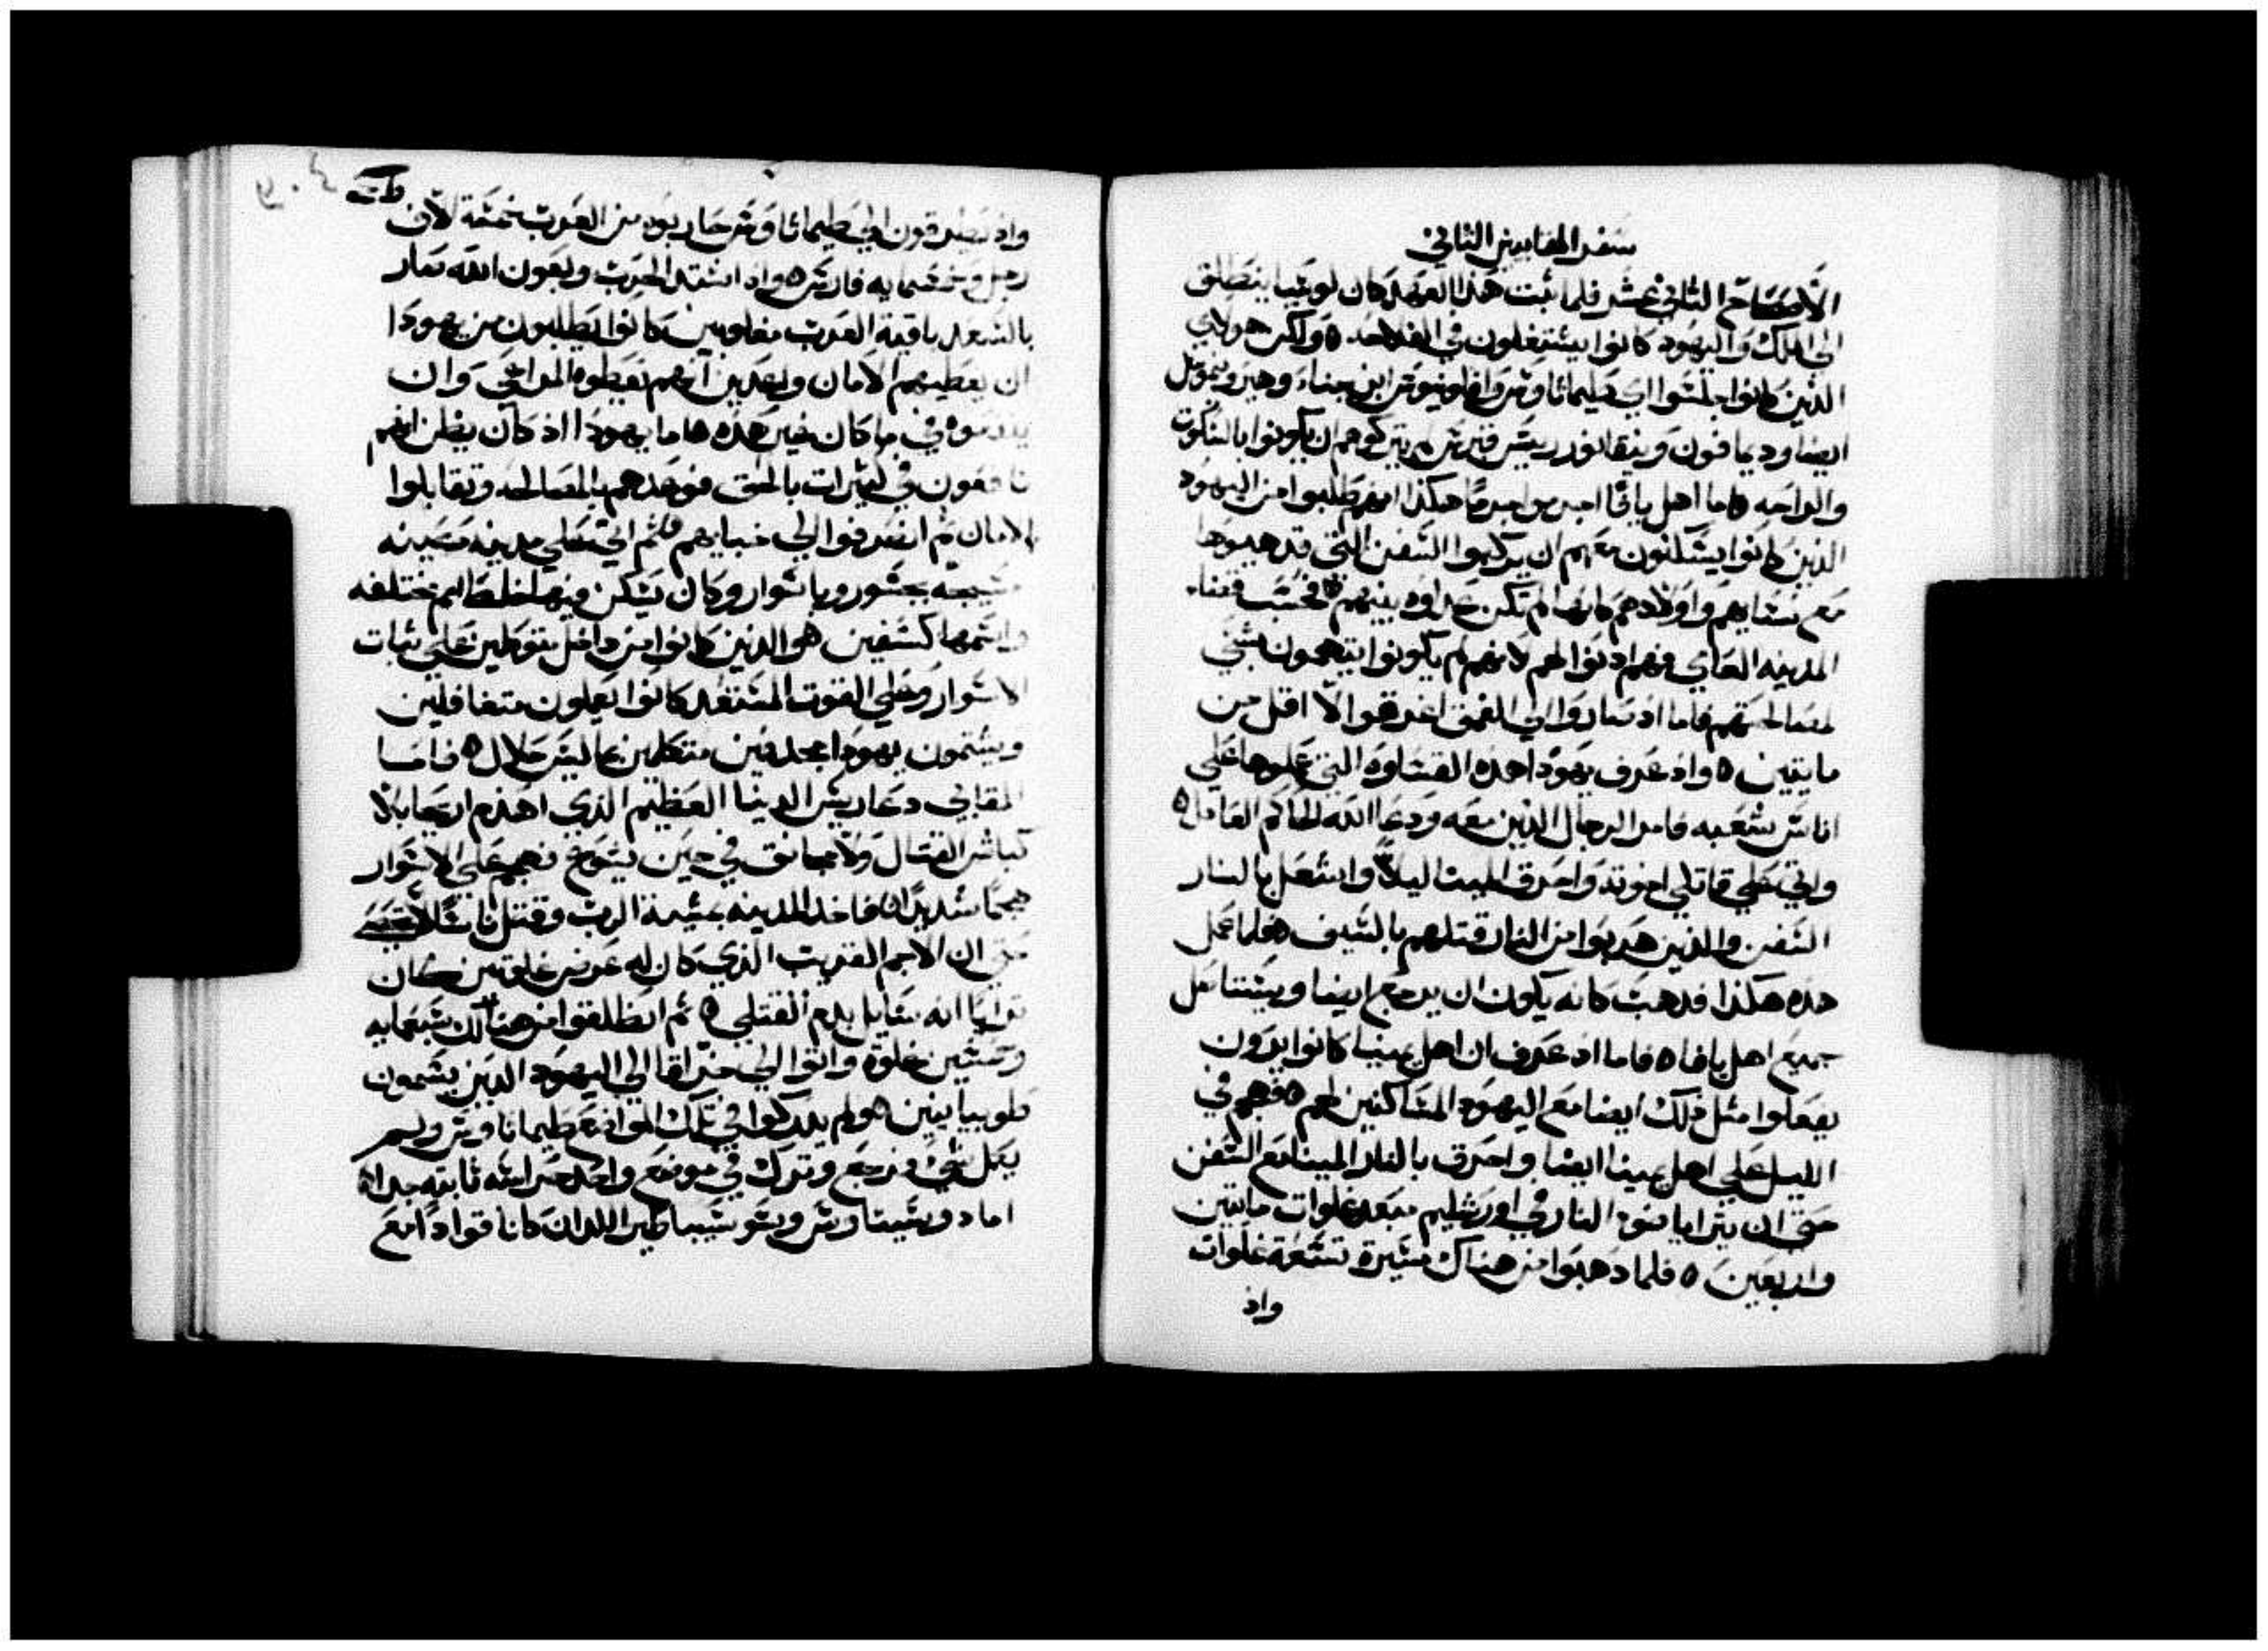 سفر المقابيين الثاني
الاصحاح الثاني عشر فلما ثبت هذا العهد كان لوسيا ينطلق
الى الملك واليهود كانوا يشتغلون في الفلاحه ٥ ولكن هولاي
الذين كانوا جلسوا اي طيماثاوس وافلونيوس ابن جناء وهيرونموس
ايضا وديمافون ونيقانور رييس قبرس لم يتركوهم ان يكونوا بالسكوت
والراحه ٥ اما اهل يافا اجرموا جرمًا هكذا انهم طلبوا من اليهود
الذين كانوا يسكنون معهم ان يركبوا السفن التي قد هيوها
مع نسايهم واولادهم كانها لم تكن عداوه بينهم ٥ فحسب قضاء
المدينه العاي فهم اذنوا لهم لانهم لم يكونوا يتهمون بشي
لمصالحتهم فاما اذ ساروا الى العمق اغرقوا الا اقل من
مايتين ٥ واذ عرف يهودا هذه القساوه التي عملوها على
اناس شعبه فامر الرجال الذين معه ودعا الله الحاكم العادل ٥
واتى على قاتلي اخوته واحرق المينا ليلًا واشعل بالنار
السفن والذين هربوا من النار قتلهم بالسيف ٥ فلما عمل
هذه هكذا فدهب كانه يكون ان يرجع ايضا ويستاصل
جميع اهل يافا ٥ فاما اذ عرف ان اهل يمنيا كانوا يريدون
يفعلوا مثل ذلك ايضا مع اليهود الساكنين لهم ٥ فهجم في
الليل على اهل يمنيا ايضا واحرق بالنار المينا مع السفن
حتى ان يترايا ضوء النار في اورشليم مبعد غلوات مايتين
واربعين ٥ فلما دهبوا من هناك مسيرة تسعة غلوات
واذ
واذ يطرقون الى طيماثاوس حاربوه من العرب خمسة الاف
رجل وخمسمايه فارس ٥ واذ اشتد الحرب وبعون الله صار
بالسعد باقية العرب مغلوبين كانوا يطلبون من يهودا
ان يعطيهم الامان واعدين انهم يعطوه المراعي وان
في ما كان غير هذه ٥ اما يهودا اذ كان يظن انهم
في كثيرات بالحق فوعدهم بالمصالحه وتقابلوا
الامان ثم انصرفوا الى خيامهم ٥ ثم اتى على مدينه حصينه
مسيجه بجسور وباسوار وكان يسكن فيها اخلاط امم مختلفه
واسمها كسفين ٥ والذين كانوا من داخل متوكلين على ثبات
الاسوار وعلى القوت المستعد كانوا يعملون متغافلين
ويشتمون يهودا مجدفين متكلمين بما ليس حلال ٥ فاما
المقابي دعا رييس الدنيا العظيم الذي اهدم اريحا بلا
كباش القتال ولا مجانق في حين يشوع فهجم على الاسوار
هجمًا شديدًا ٥ فاخذ المدينه بمشية الرب وقتل ناسًا لا تحصى
حتى ان الاجم القريب الذي كان له عرض غلوتين كان
ترايا انه سايل بدم القتلى ٥ ثم انطلقوا من هنالك سبعمايه
وخمسين غلوة واتوا الى خراقا الى اليهود الذين يسمون
طوبيايين ٥ ولم يدركوا في تلك المواضع طيماثاوس ولم
يعمل شي ورجع وترك في موضع واحد حراسه ثابته جدا ٥
اما دوسيتاوس وسوسيباطير اللذان كانا قوادًا مع